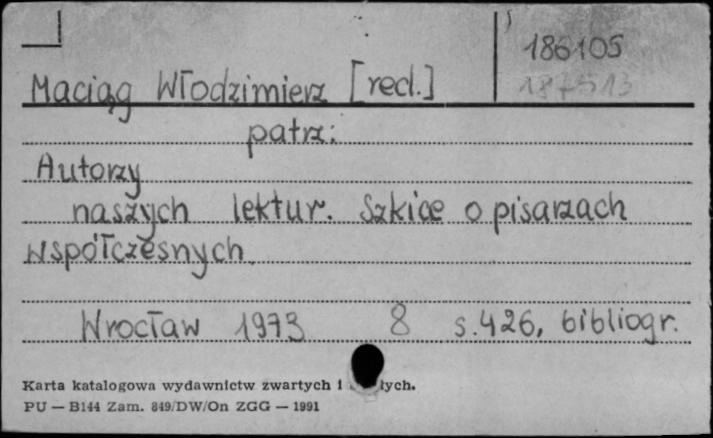 186105
Maciąg Włodzimierz [red.]
patrz:
Autorzy
naszych lektur. Szkice o pisarzach
współczesnych
Wrocław 1973 8 s.426, bibliogr.
Karta katalogowa wydawnictw zwartych i
PU — B144 Zam. 849/DW/On ZGG — 1991